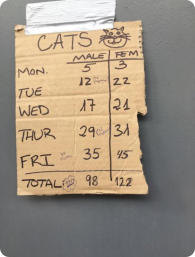 CATS
MALE FEM
MON. 5 3
TUE 12 22
WED 17 21
THUR 29 31
FRI 35 45
TOTAL 98 122